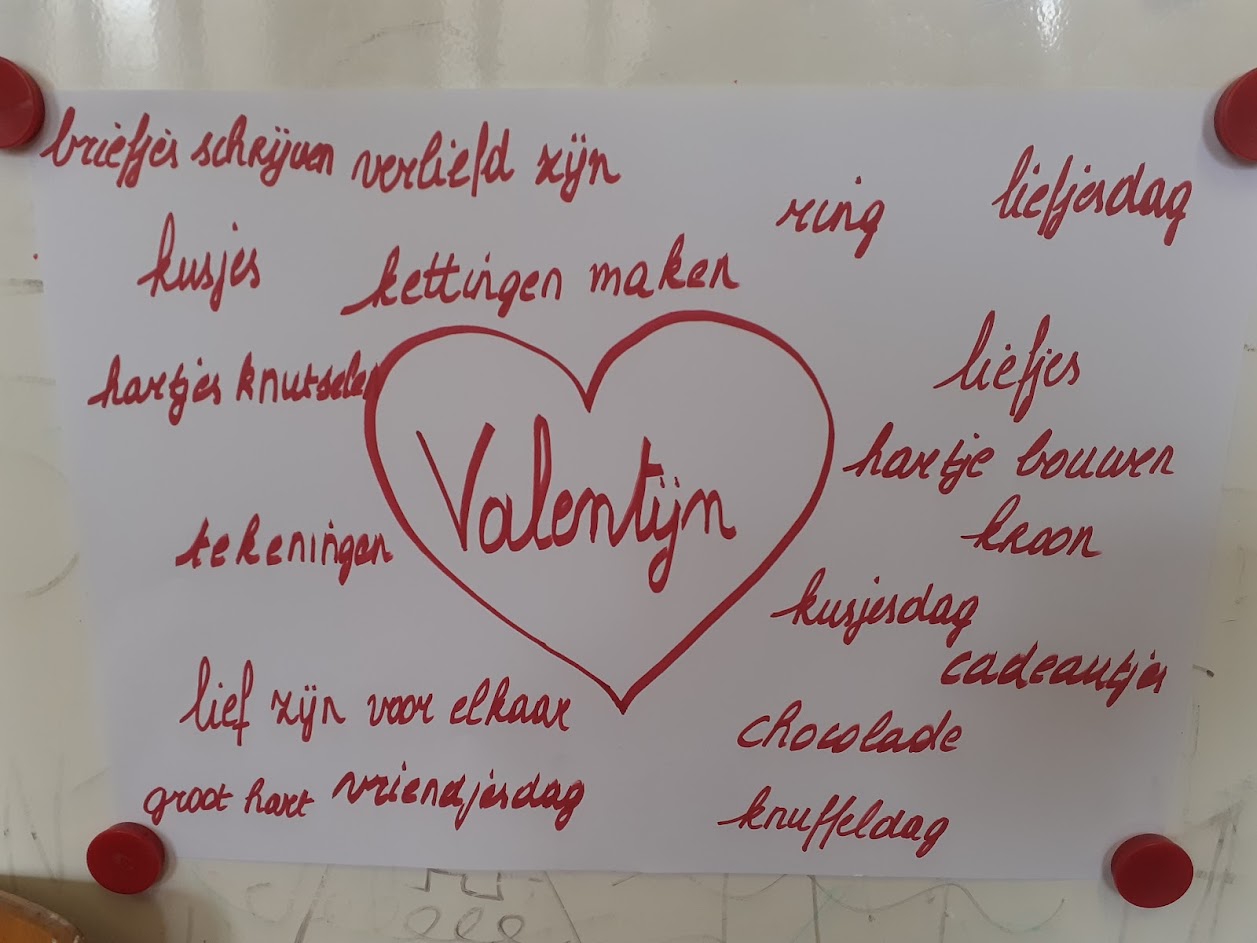 briefjes schrijven
verliefd zijn
ring
liefjesdag
kusjes
kettingen maken
liefjes
hartjes knutselen
Valentijn
hartje bouwen
kroon
tekeningen
kusjesdag
cadeautjes
lief zijn voor elkaar
chocolade
groot hart
vriendjesdag
knuffeldag